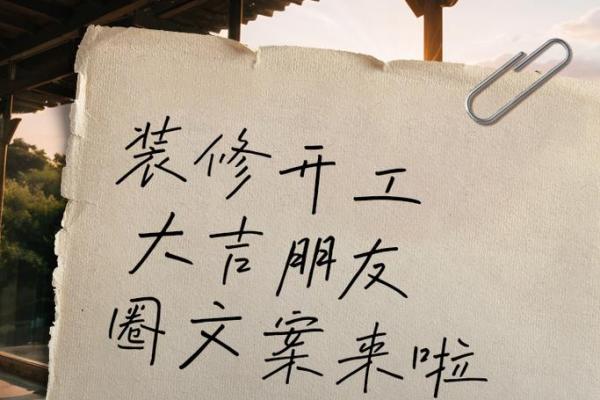 装修开工
大吉朋友
圈文案来啦